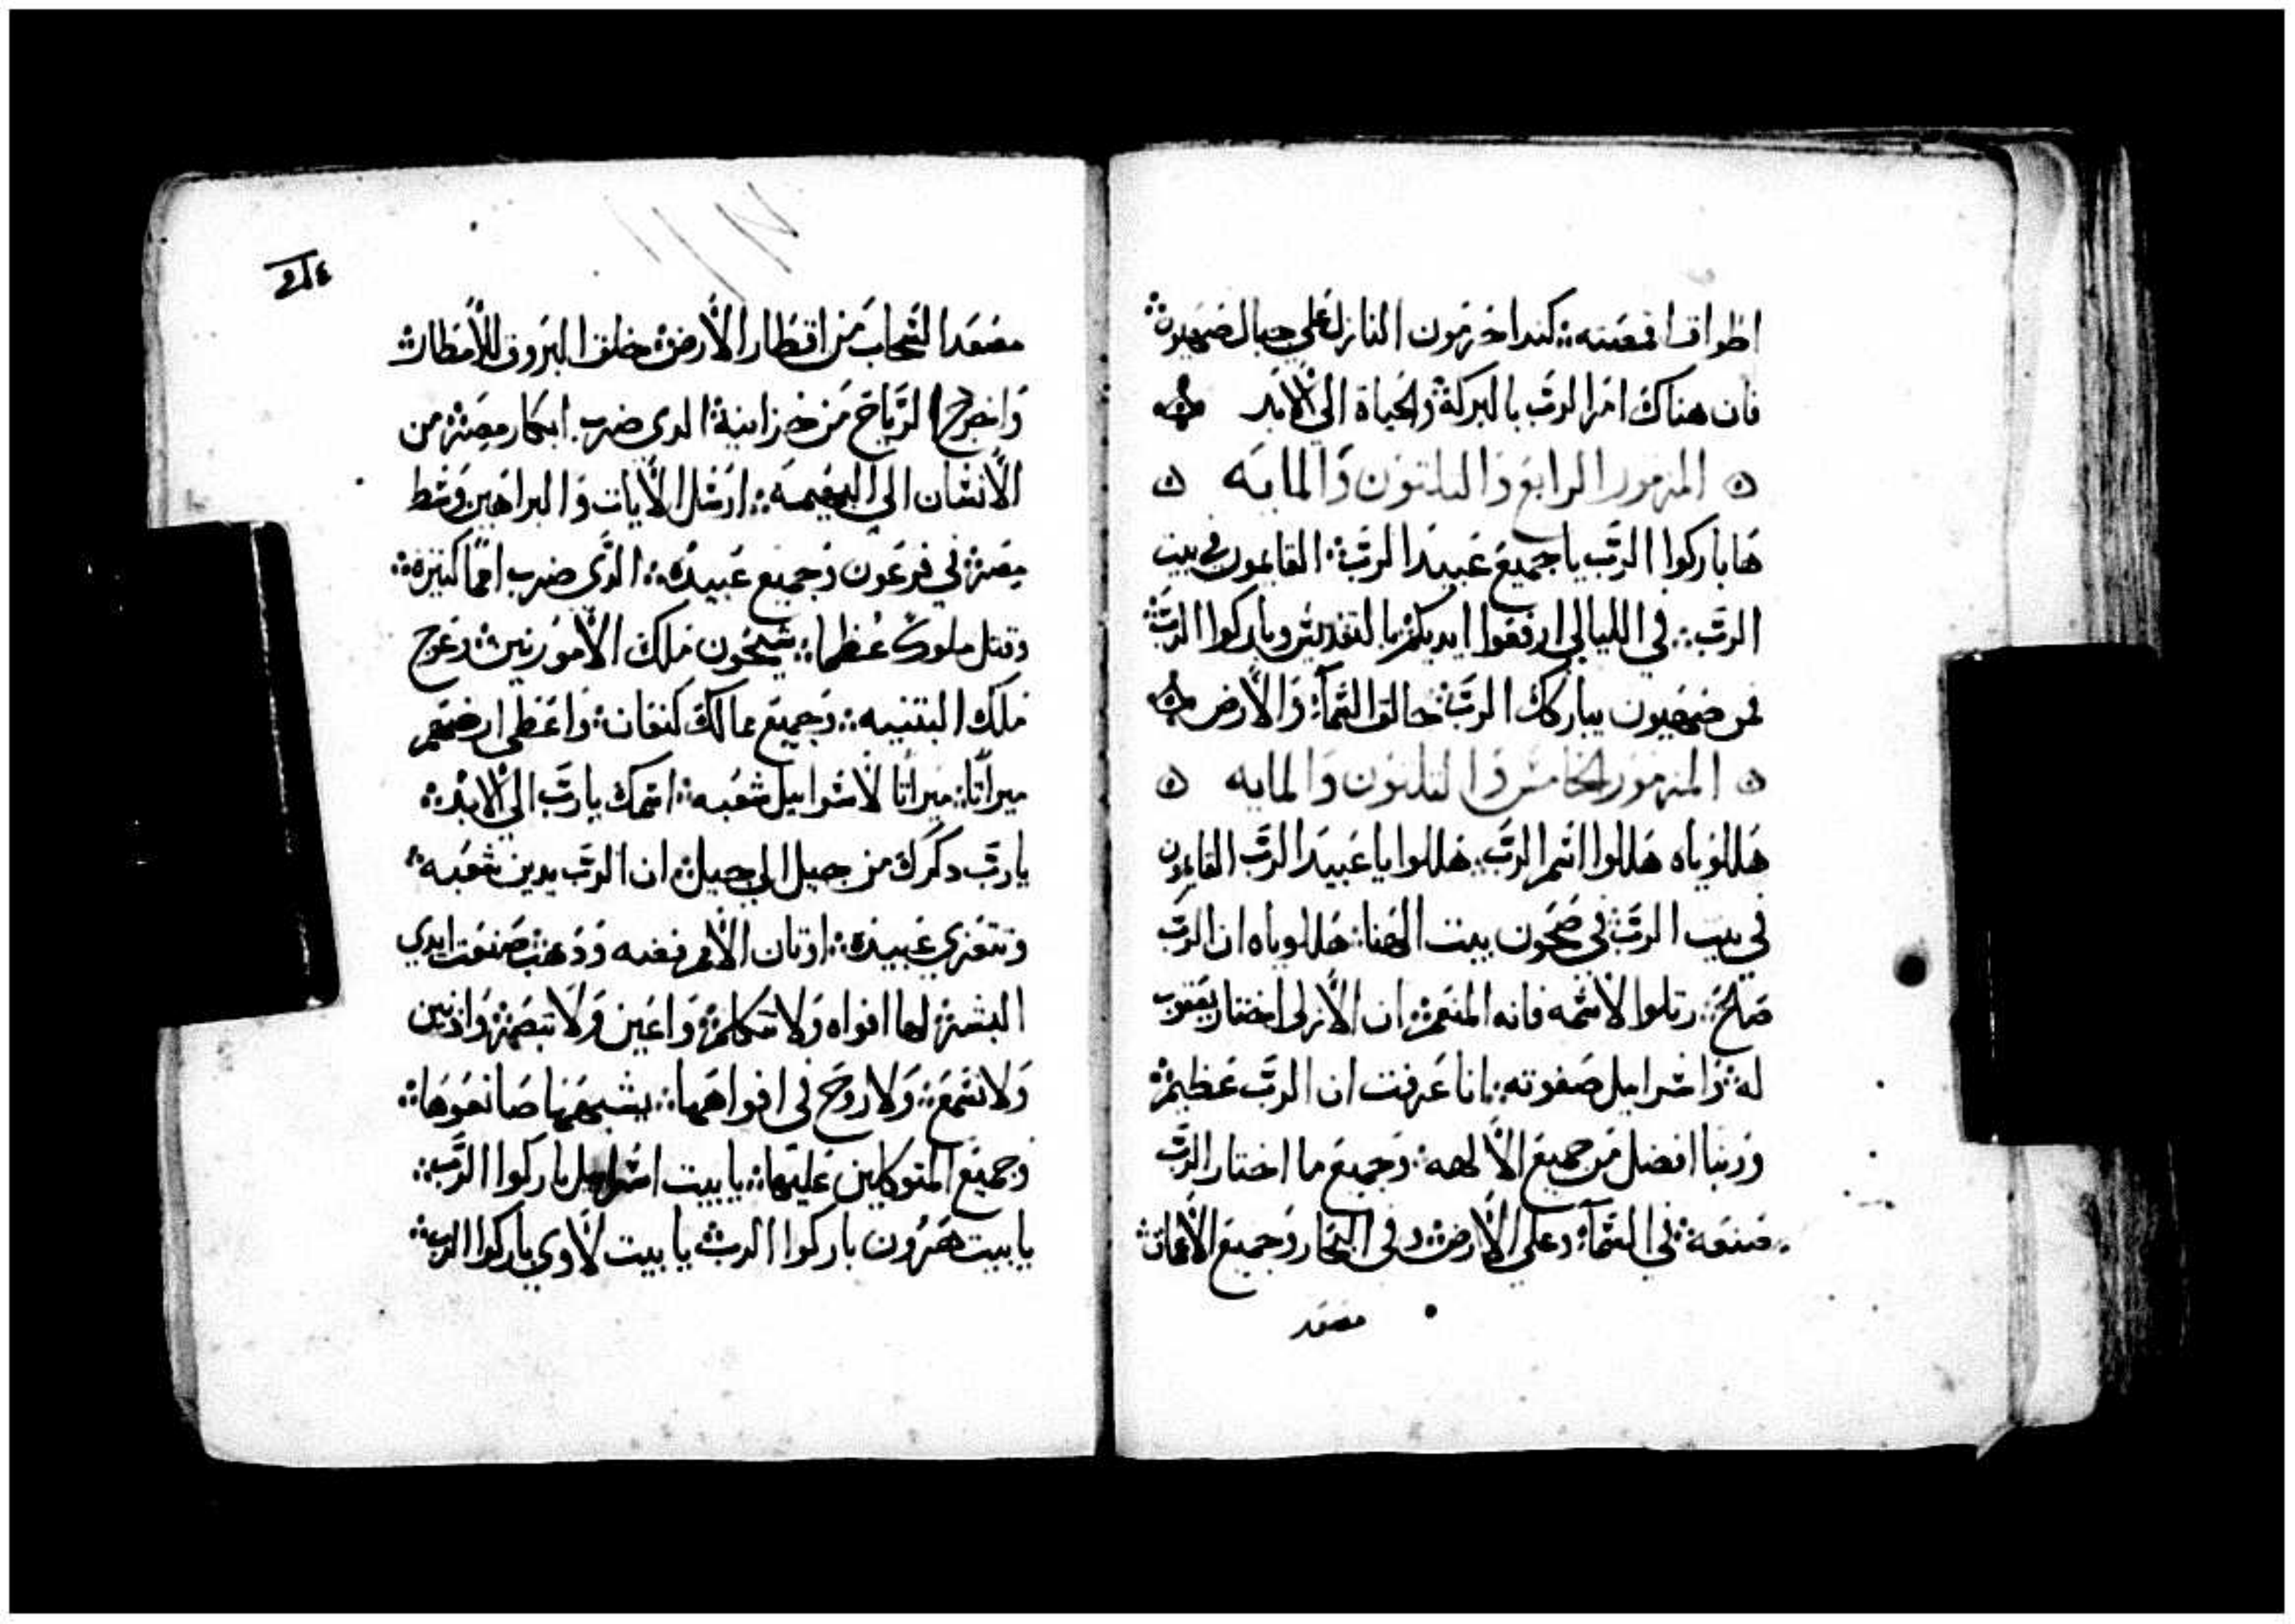 اطواق قمصته كندا خرمون النازل علي جبال صهيون
فان هناك امر الرب بالبركة والحياة الي الابد
المزمور الرابع والتلتون والمايه
ها باركوا الرب يا جميع عبيد الرب القايمون في بيت
الرب في الليالي ارفعوا ايديكم بالتقديس وباركوا الرب
من صهيون يباركك الرب خالق السماء والارض
المزمور الخامس والتلتون والمايه
هللوياه هللوا اسم الرب هللوا يا عبيد الرب القايمون
في بيت الرب في صحون بيت الهنا هللوياه ان الرب
صالح رتلوا لاسمه فانه المنعم ان الازلي اختار يعقوب
له واسراييل صفوته انا عرفت ان الرب عظيم
وربنا افضل من جميع الالهه وجميع ما اختار الرب
صنعه في السماء وعلي الارض وفي البحار وجميع الاعماق
مصعد
مصعد السحاب من اقطار الارض خلق البروق للامطار
واخرج الرياح من خزاينه الدي ضرب ابكار مصر من
الانسان الي البهيمه ارسل الايات والبراهين وسط
مصر في فرعون وجميع عبيده الدي ضرب امما كتيره
وقتل ملوك عظما سيحون ملك الامورنين وعوج
ملك البتنيه وجميع ممالك كنعان واعطي ارضهم
ميراتا ميراتا لاسراييل شعبه اسمك يا رب الي الابد
يا رب دكرك من جيل الي جيل ان الرب يدين شعبه
وتتعزي عبيده اوتان الامم فضه ودهب صنعت ايدي
البشر لها افواه ولا تتكلم واعين ولا تبصر وادنين
ولا تسمع ولا روح في افواهها يشبهها صانعوها
وجميع المتوكلين عليها يا بيت اسراييل باركوا الرب
يا بيت هرون باركوا الرب يا بيت لاوي باركوا الرب